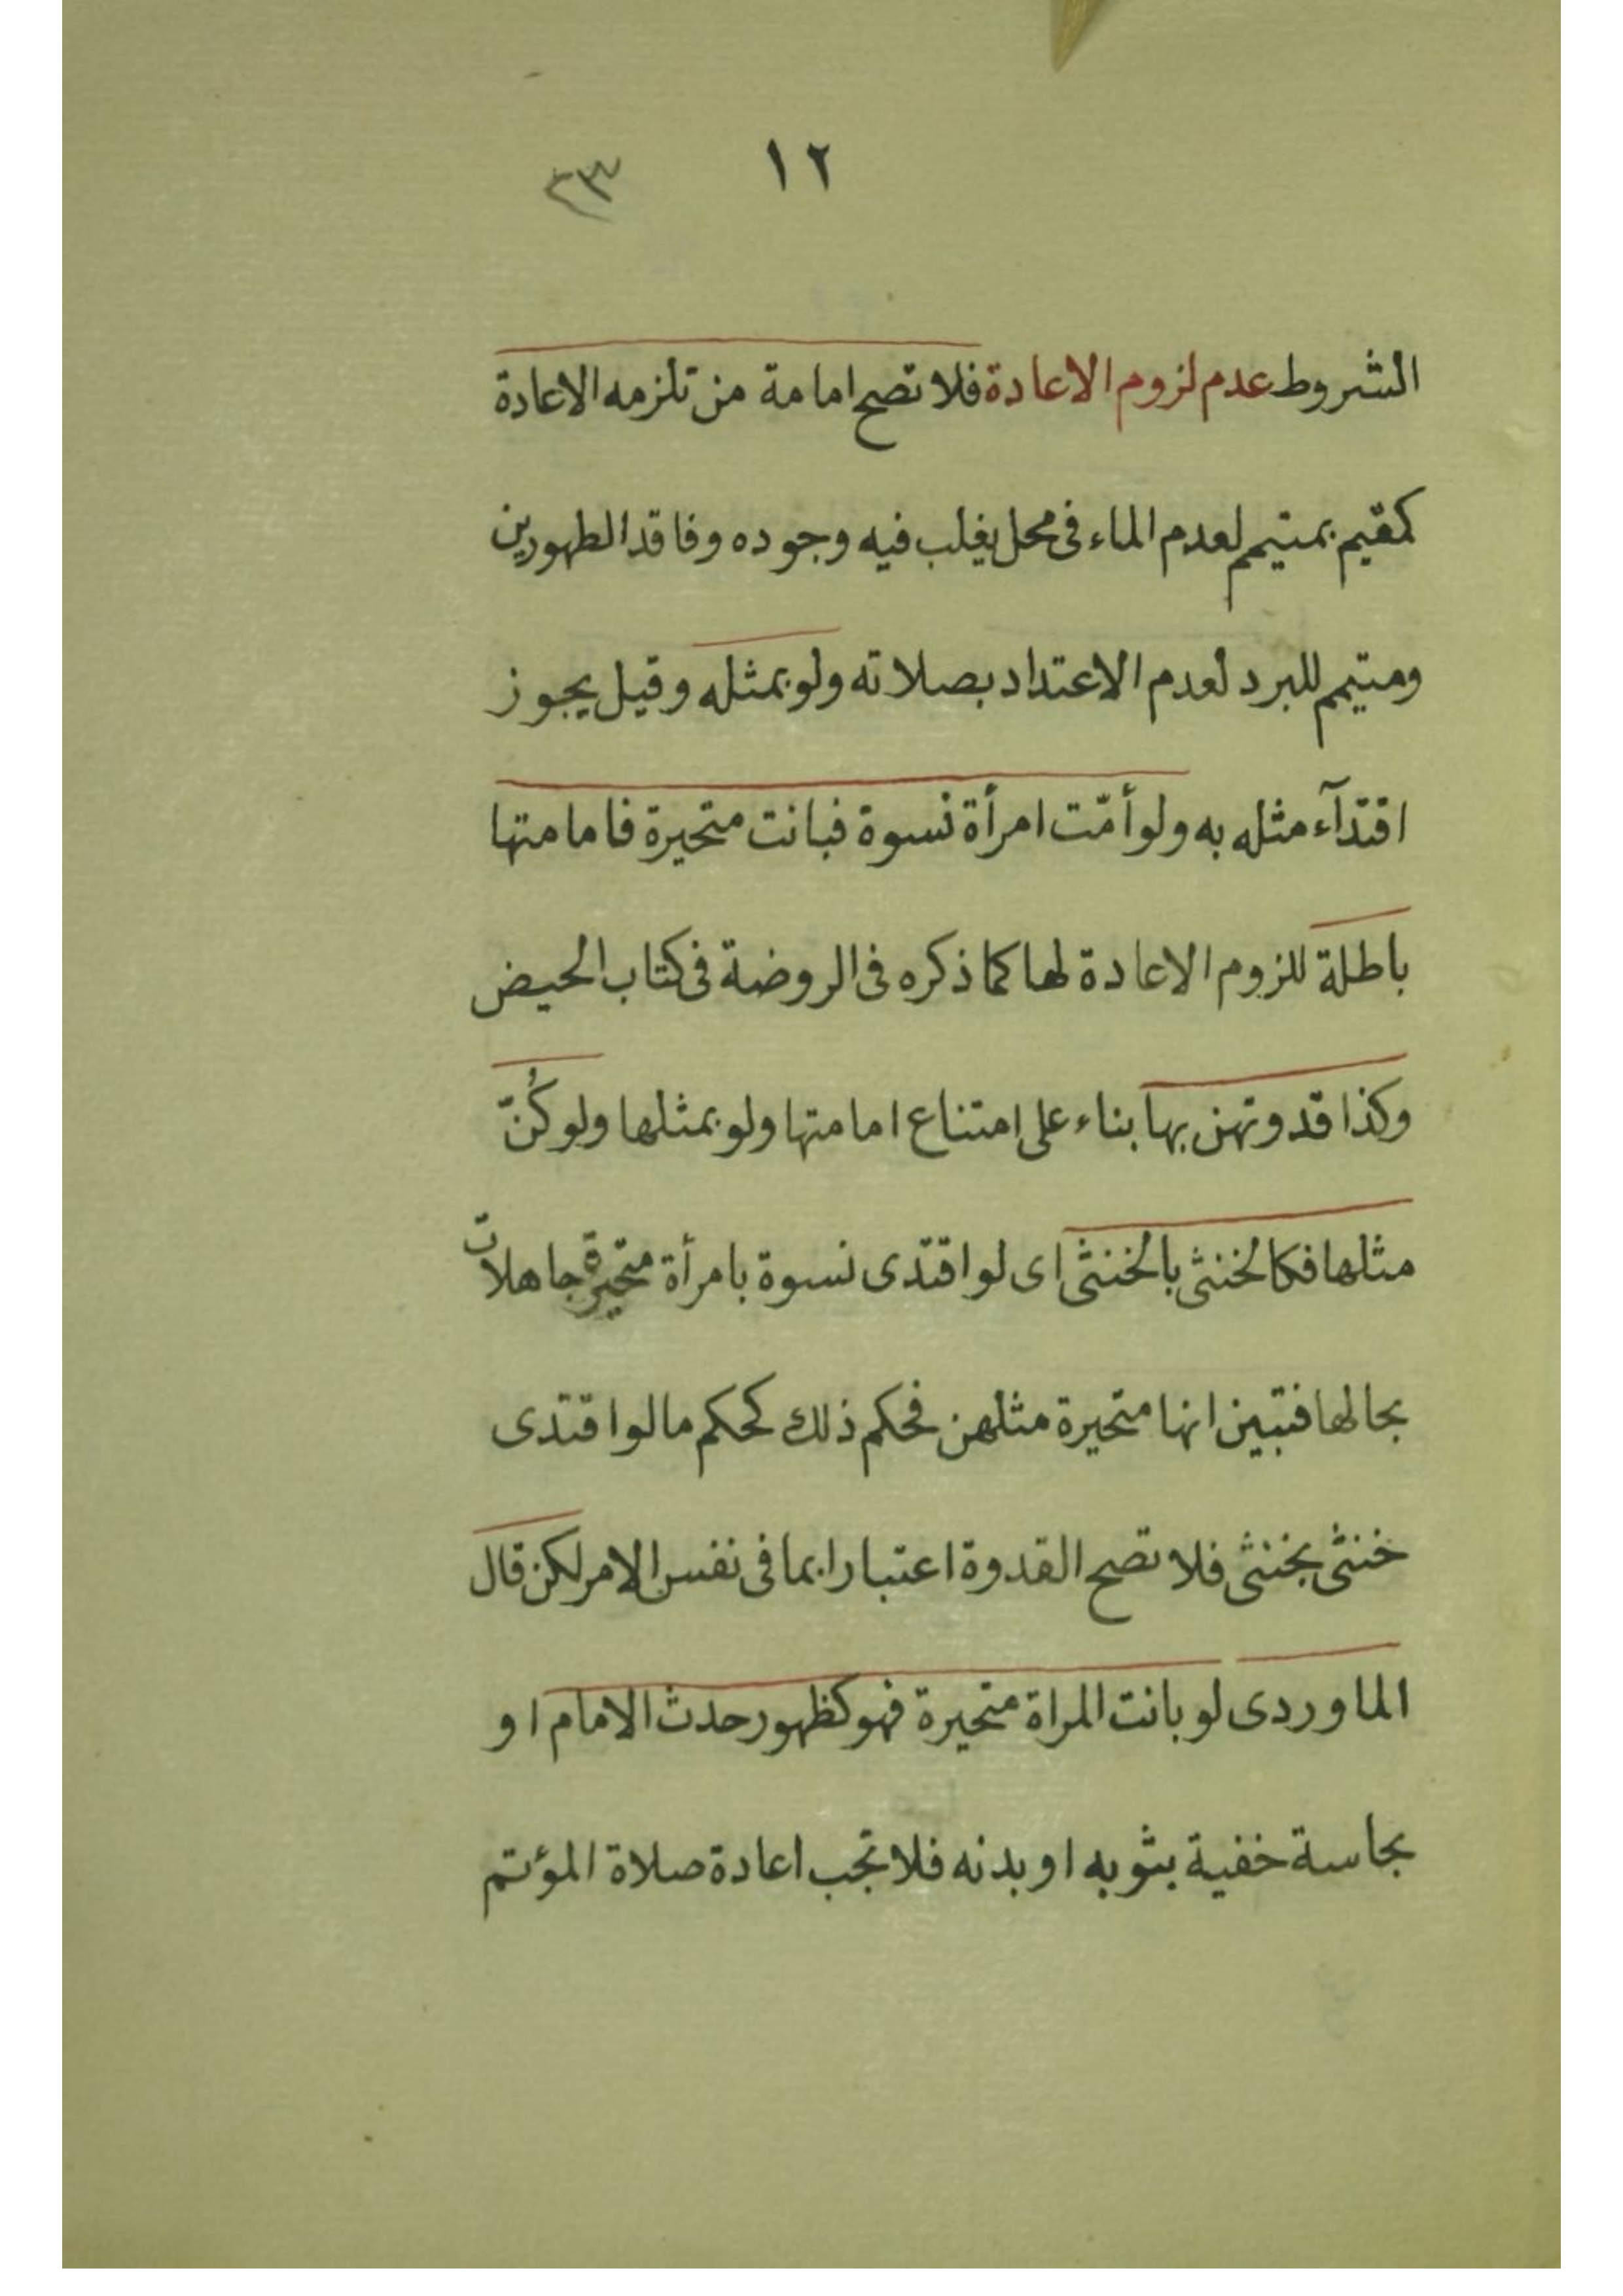 ١٢ ٢٣
الشروط عدم لزوم الاعادة فلا تصح امامة من تلزمه الاعادة
كمقيم بمتيمم لعدم الماء فى محل يغلب فيه وجوده وفاقد الطهورين
ومتيمم للبرد لعدم الاعتداد بصلاته ولو بمثله وقيل يجوز
اقتدآء مثله به ولو أمّت امرأة نسوة فبانت متحيرة فامامتها
باطلة للزوم الاعادة لها كما ذكره فى الروضة فى كتاب الحيض
وكذا قدوتهن بها بناء على امتناع امامتها ولو بمثلها ولو كُنّ
مثلها فكالخنثى بالخنثى اى لو اقتدى نسوة بامرأة متحيرة جاهلات
بحالها فتبين انها متحيرة مثلهن فحكم ذلك كحكم ما لو اقتدى
خنثى بخنثى فلا تصح القدوة اعتبارا بما فى نفس الامر لكن قال
الماوردى لو بانت المراة متحيرة فهو كظهور حدث الامام او
نجاسة خفية بثوبه او بدنه فلا تجب اعادة صلاة المؤتم